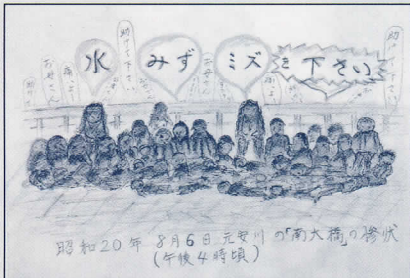 助けて下さい
お母さん
水 みず ミズ を 下さい
お母さん
助けて下さい
昭和20年 8月6日 元安川の「南大橋」の惨状
(午後4時頃)